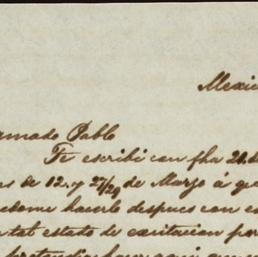 Mexic
amado Pablo
Te escribi con fha 21.
as de 12. y 27/29 de Marzo á q
hacerlo despues con e
tal estado de exitacion por